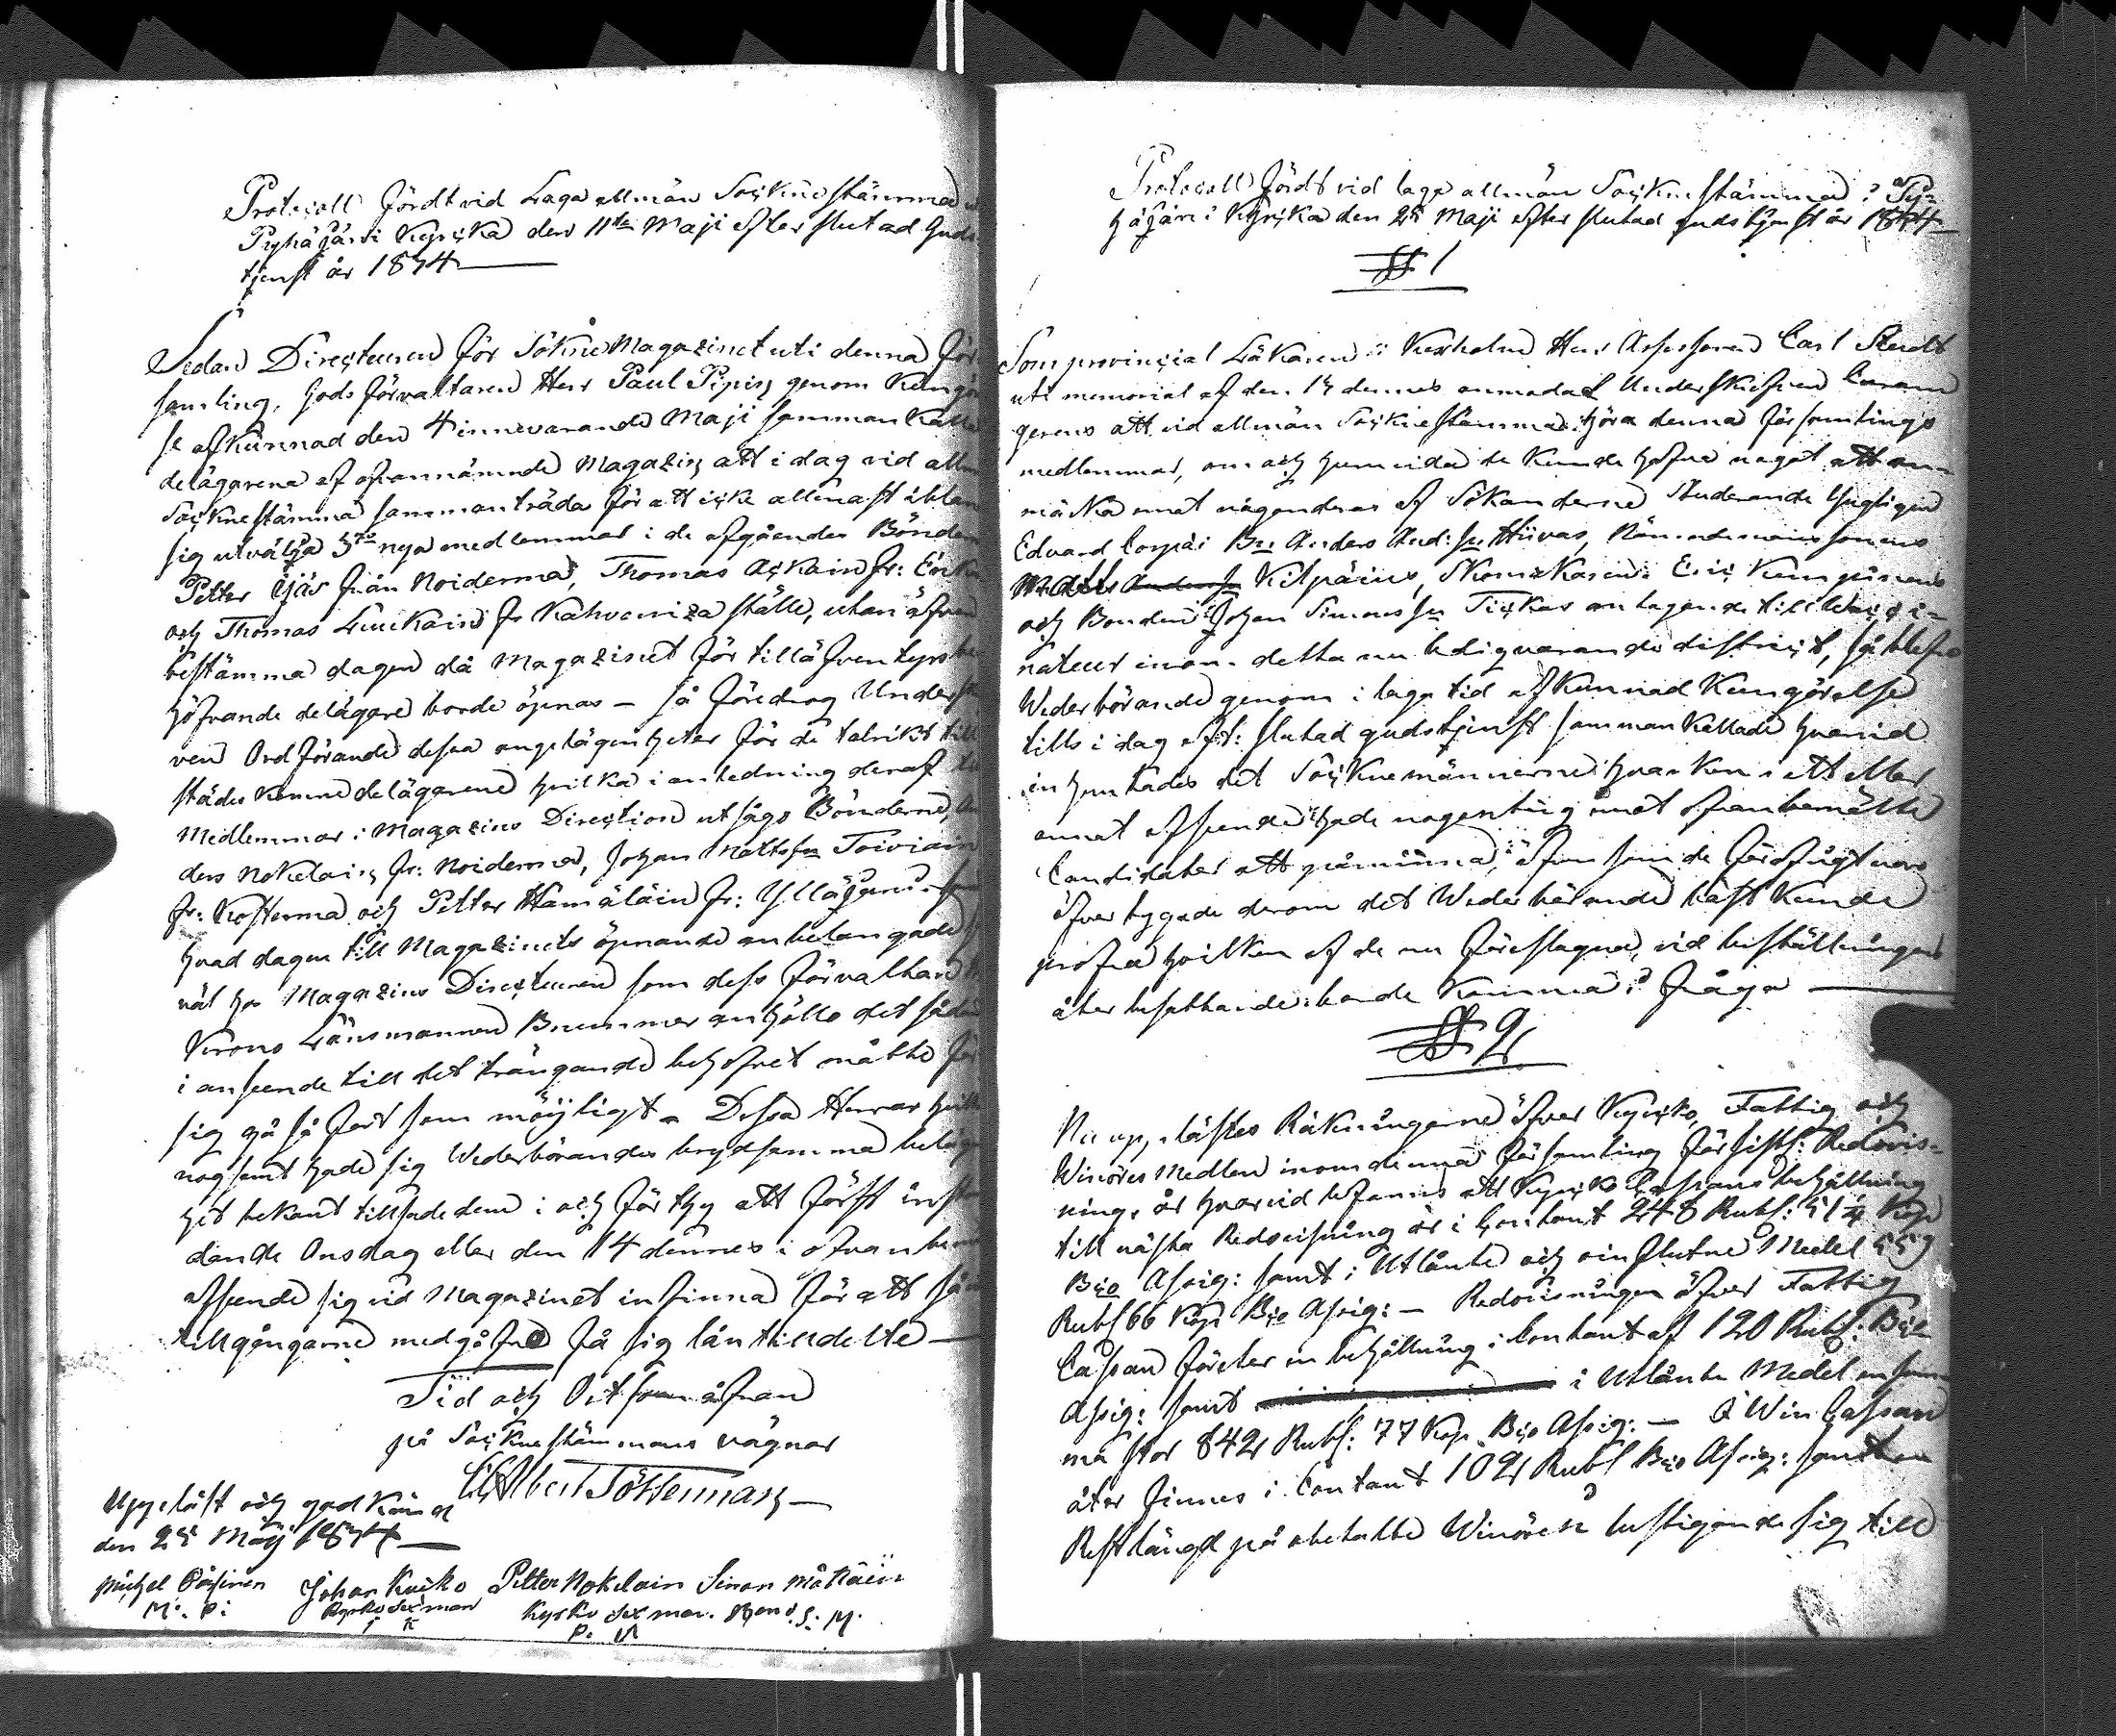 Protocoll fördt vid Laga allmän Sockne stämma
Pyhäjärvi Kyrcka den 11te Maji efter slutad Guds
tjenst år 1834
Sedan Directeuren för Sökne Magazinet uti denna För
samling, Gods förvaltaren Herr Paul Pipin genom Kungö
se afkunnad den 4 innevarande Maji sammankalla
delägarena af ofvannämnde Magazin att i dag vid allm
Sockne stämma sammanträda för att icke allenast ibland
sig utvälja 3ne nya medlemmar i de afgående Bönder
Petter Ijäs från Noiderma, Thomas Ackain fr:
och Thomas Luukain fr Kahveniza ställe, utan äfven
bestämma dagen då Magazinet för till äfventyrs be
höfvande delägare borde öpnas — så föredrog Underskr
ven Ordförande dessa angelägenheter för de talrikt till
städes komne delägarene hvilka i anledning deraf
Medlemmar i Magazins Direction utsågo Bönderne, An
ders Nokelain fr: Noiderma, Johan Mattsson Toiviain
fr: Kostermä och Petter Hämäläin fr: Ylläjärvi.
hvad dagen till Magazinets öpnande anbelangade
väl hos Magazins Directeuren som dess förvaltan
Krono Länsmannen Brummer anhöllo det såda
i anseende till det trängande behofvet måtte för
sig gå så fort som möjligt. Dessa Herrar hvilk
nogsamt hade sig Wederbörandes brydsamma beläge
het bekant tillsade dem i och för thy att först inst
dande Onsdag eller den 14 dennes i ofvan be
afseende sig vid Magazinet infinna för att så
tillgångarne medgåfvo få sig lån tilldelte —
Tid och Ort som ofvan
på Sockne stämmans vägnar
C. Albert Tötterman
Uppläst och godkänd
den 25 Maj 1834
Michel Päsinen Johan Kuicko Petter Nokelain Simon Mättäin
M. P. Kyrko Sexman Kyrko Sexman. Bond. S. M.
P. N
Protocoll fördt vid laga allmän Sockne stämma i Py-
häjärvi Kyrcka den 25 Maji efter slutad gudstjenst år 1834
§ 1
Som provincial Läkaren i Kexholm Herr Assessoren Carl
uti memorial af den 15 dennes anmodat Underskrifven
gerens att vid allmän Sockne stämma höra denna församlings
medlemmar, om och hvem vida de kunde hafva något att an-
märka emot någondera af Sökanderne Studerande
Edvard Be Anders And:sn Hiivas, Nämndemans sonens
Matts Kilpäins, Skomakaren Eric
och Bonden Johan Simonssn Tickas antagande till Vacci-
nateur inom detta nu ledigvarande district, så blefvo
Wederbörande genom i laga tid afkunnad Kungörelse
tills i dag eft: slutad gudstjenst sammankallade hvarvid
inhemtades det Socknemännerne hvarken i ett eller
annat afseende hade nogonting emot ofvanbemälte
Candidater att påminna, äfven som de förefogt voro
öfvertygade derom det Wederbörande bäst kunde
pröfva hvilken af de nu föreslagne, vid beställningens
återbesättande borde komma i fråga —
§ 2
Nu upplästes Räkningarne öfver Kyrcko, Fattig och
Winöres Medlen inom denna församling för sist: Redovis-
nings år hvarvid befanns att Kyrcko Cassans behållning
till nästa Redovisning är i Contant 248 Rubl: 51¼ Kop
Bco Assig: samt i Utlånte och oinflutne Medel 559
Rubl 66 Kop Bco Assig: — Redovisningen öfver Fattig
Cassan företer en behållning i Contant af 120 Rubl: Bco
Assig: samt i Utlånte Medel en sum
ma stor 842 Rubl: 77 Kop Bco Assig: — I Win Cassan
åter finnes i Contant 102 Rubl Bco Assig: samt en
Restlängd på obetalte Winören bestigande sig till